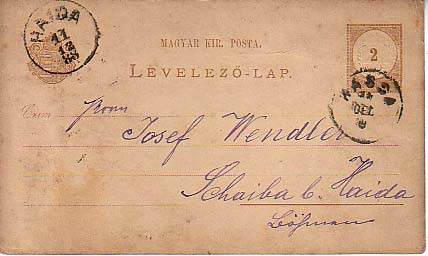 HAIDA
MAGYAR KIR. POSTA.
LEVELEZŐ-LAP.
2
Czim
Josef Wendler
Schaiba b. Haida
Böhmen